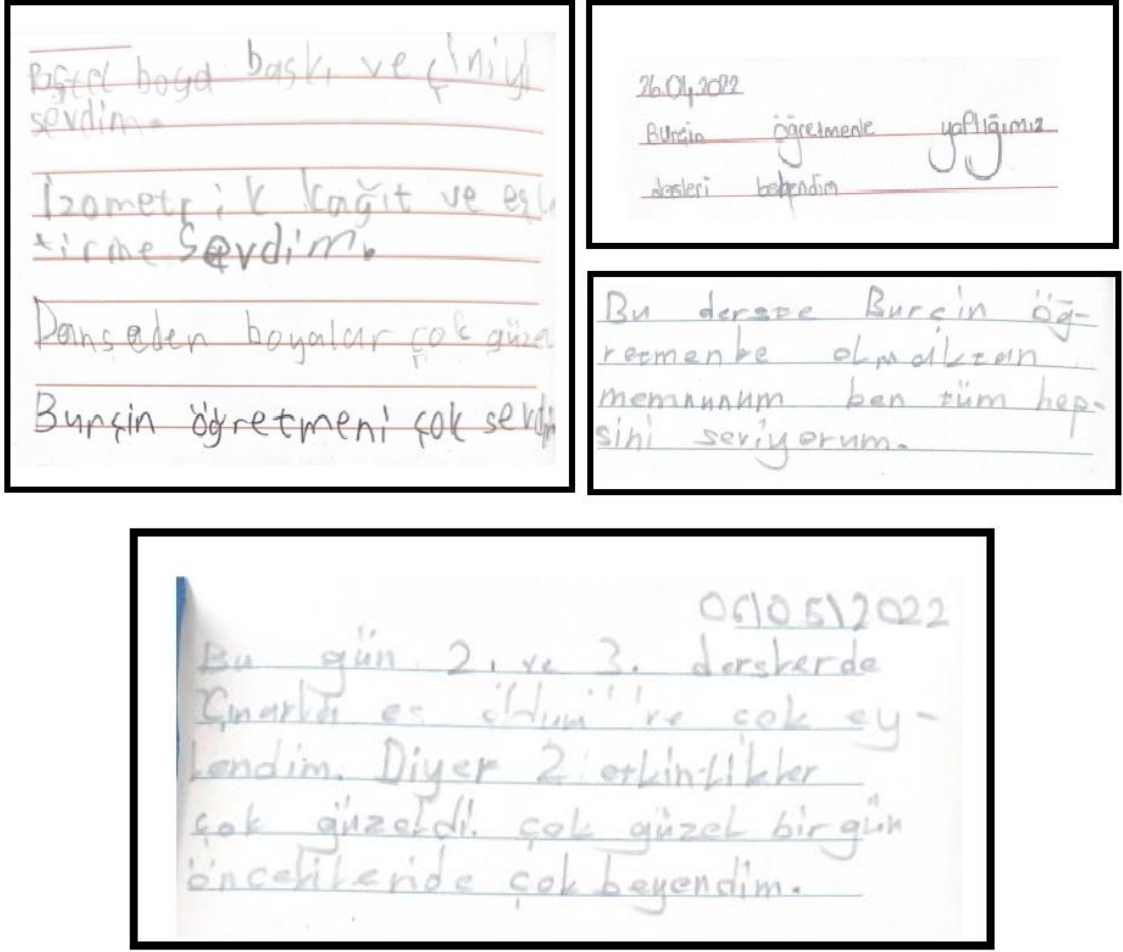 Pastel boya baskı ve çiniyi
sevdim.
İzometrik kağıt ve eşle
tirme sevdim.
Dans eden boyalar çok güzel
Burçin öğretmeni çok sevdim
26.04.2022
Burçin öğretmenle yaptığımız
desleri beğendim
Bu derste Burçin öğ-
retmenle olmaktan
memnunum ben tüm hep-
sini seviyorum.
06\05\2022
Bu gün 2. ve 3. derslerde
Çınarla eş oldum ve çok ey-
lendim. Diyer 2 etkinlikler
çok güzeldi. çok güzel bir gün
öncekileride çok beyendim.